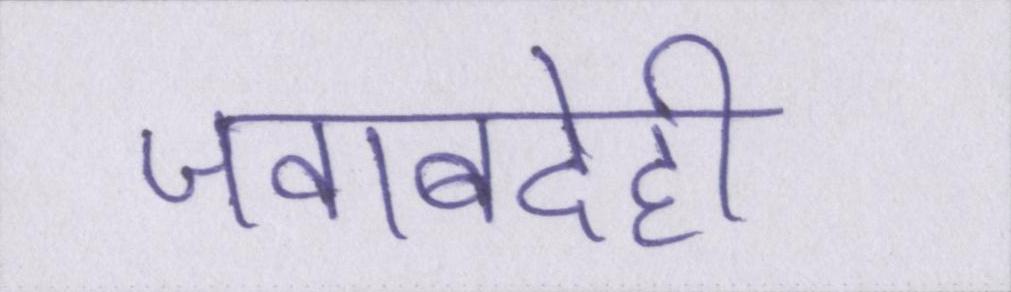 जवाबदेही